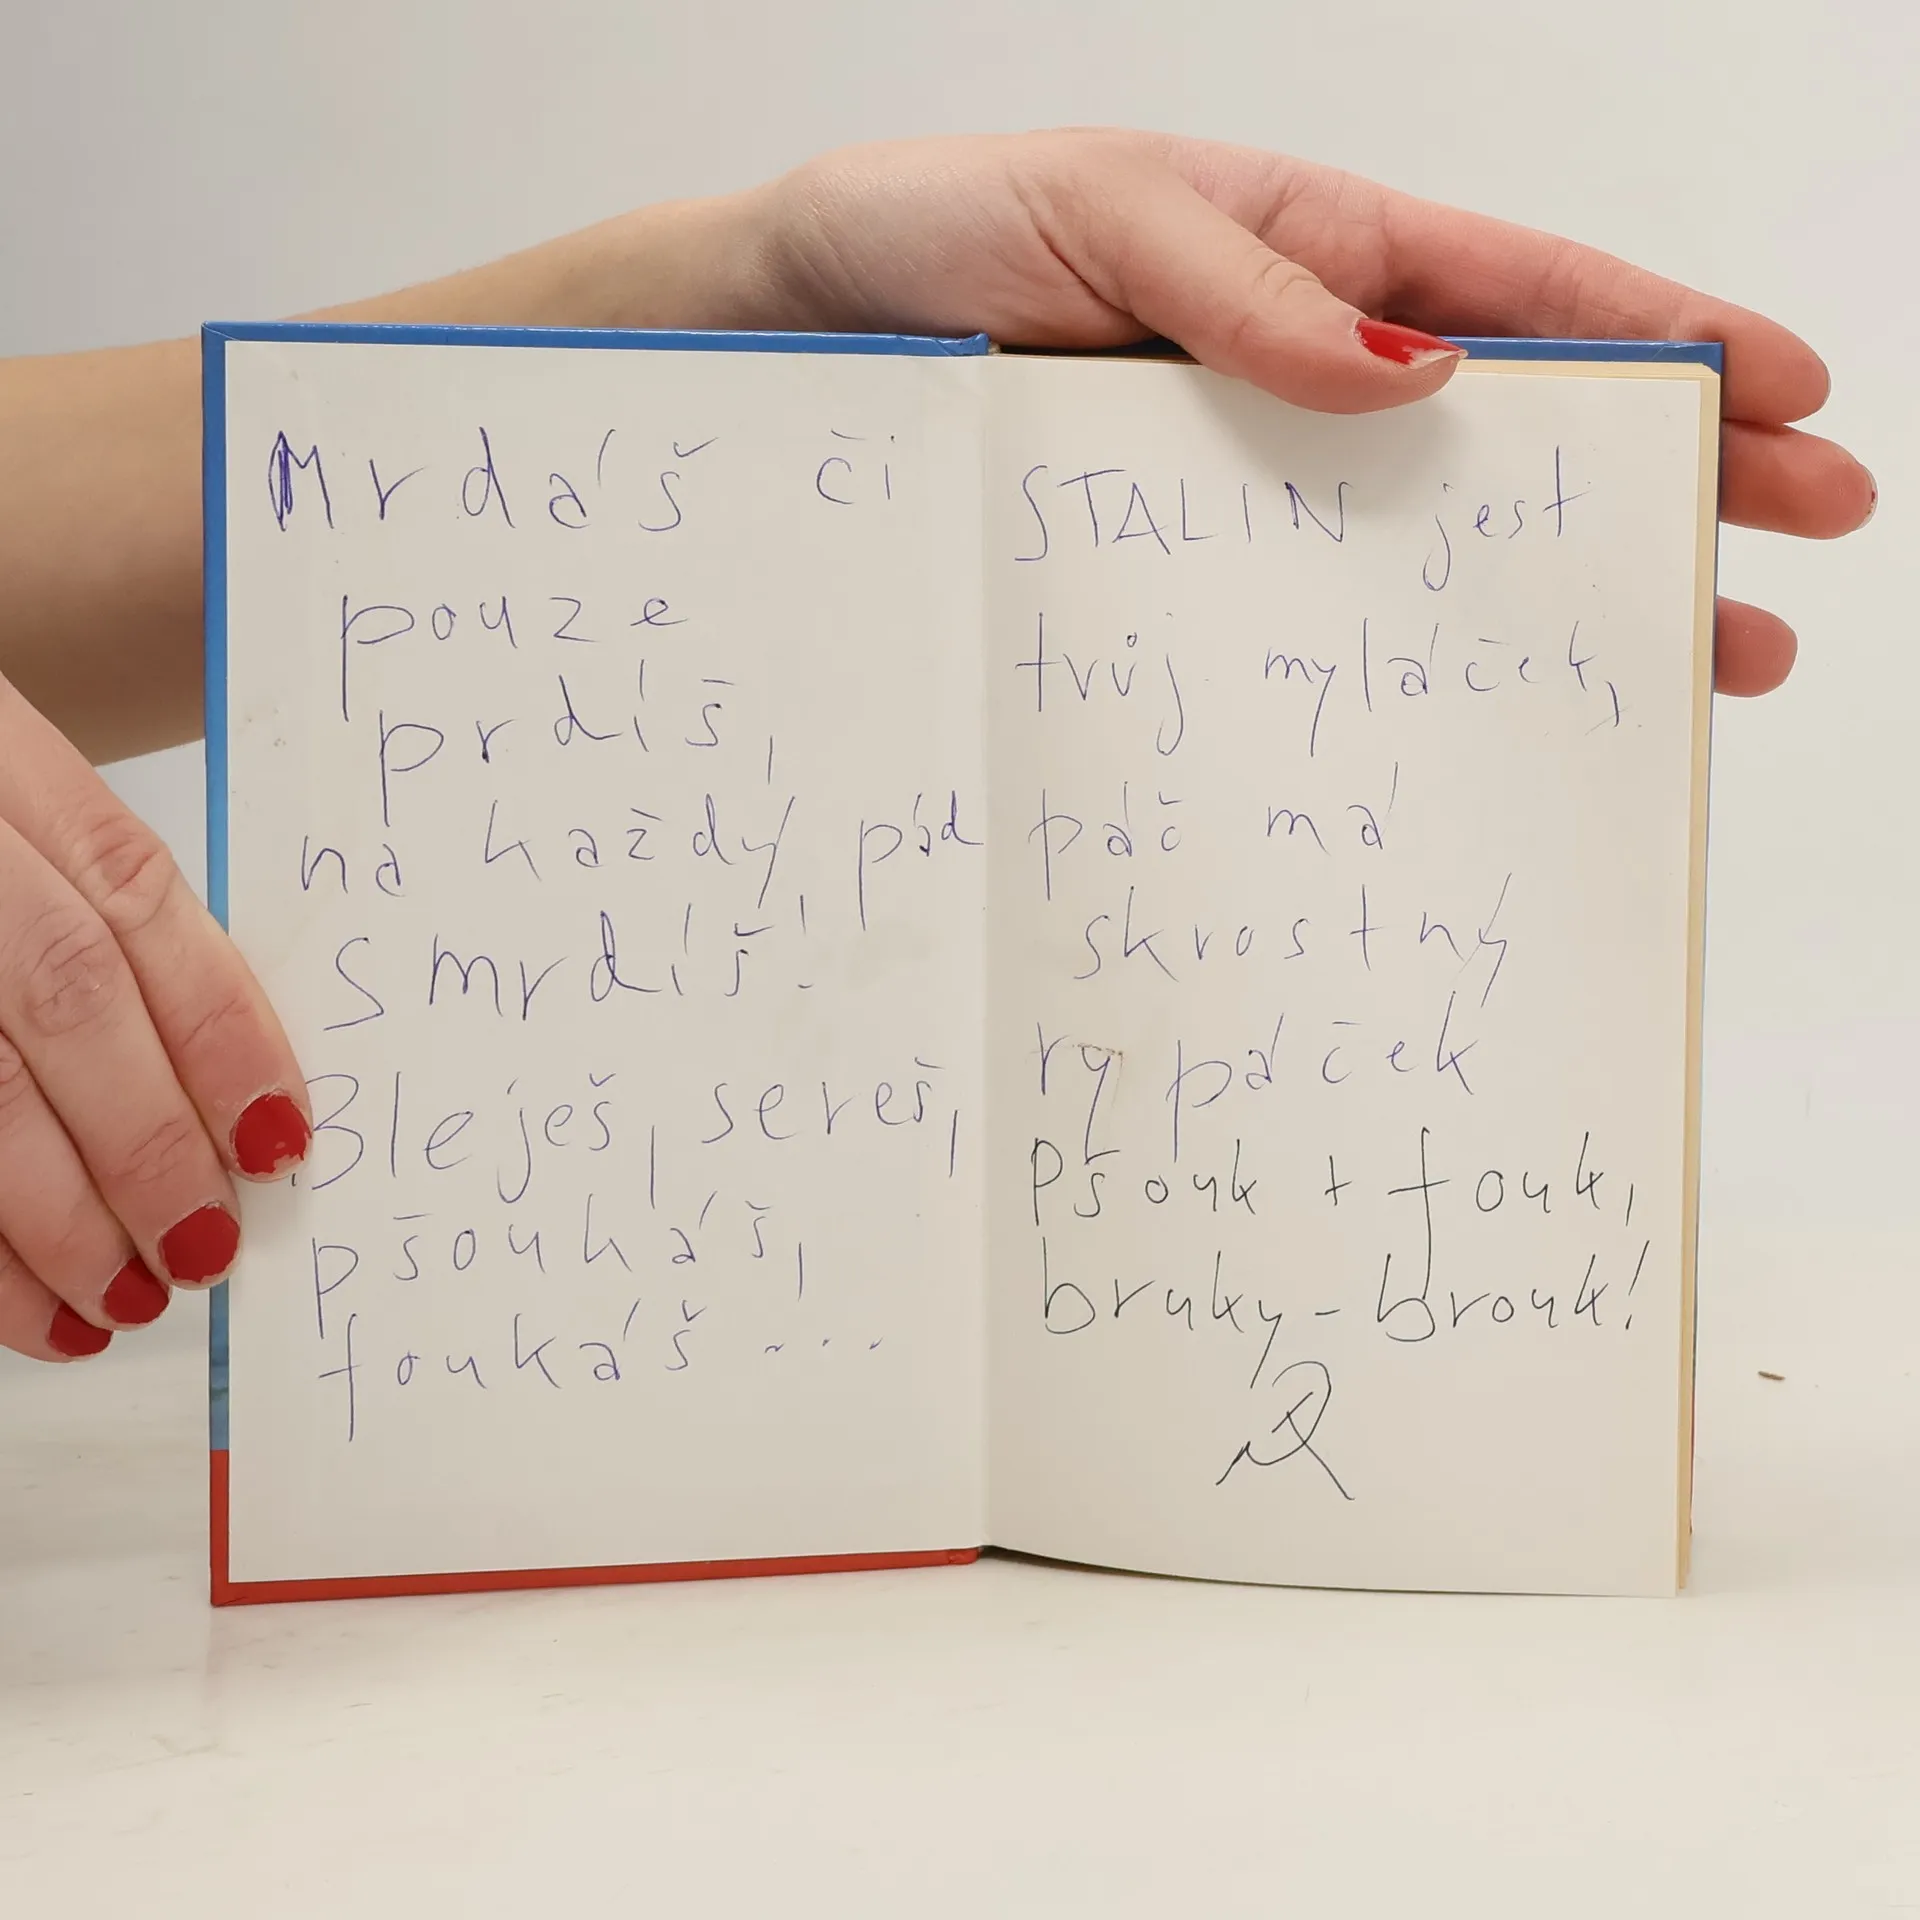 Mrdáš či
pouze
prdíš,
na každý pád
smrdíš!
Bleješ, sereš,
pšoukáš,
foukáš ....
STALIN jest
tvůj myláček,
páč má
skrostný
rypáček
Pšouk + fouk,
bruky - brouk!